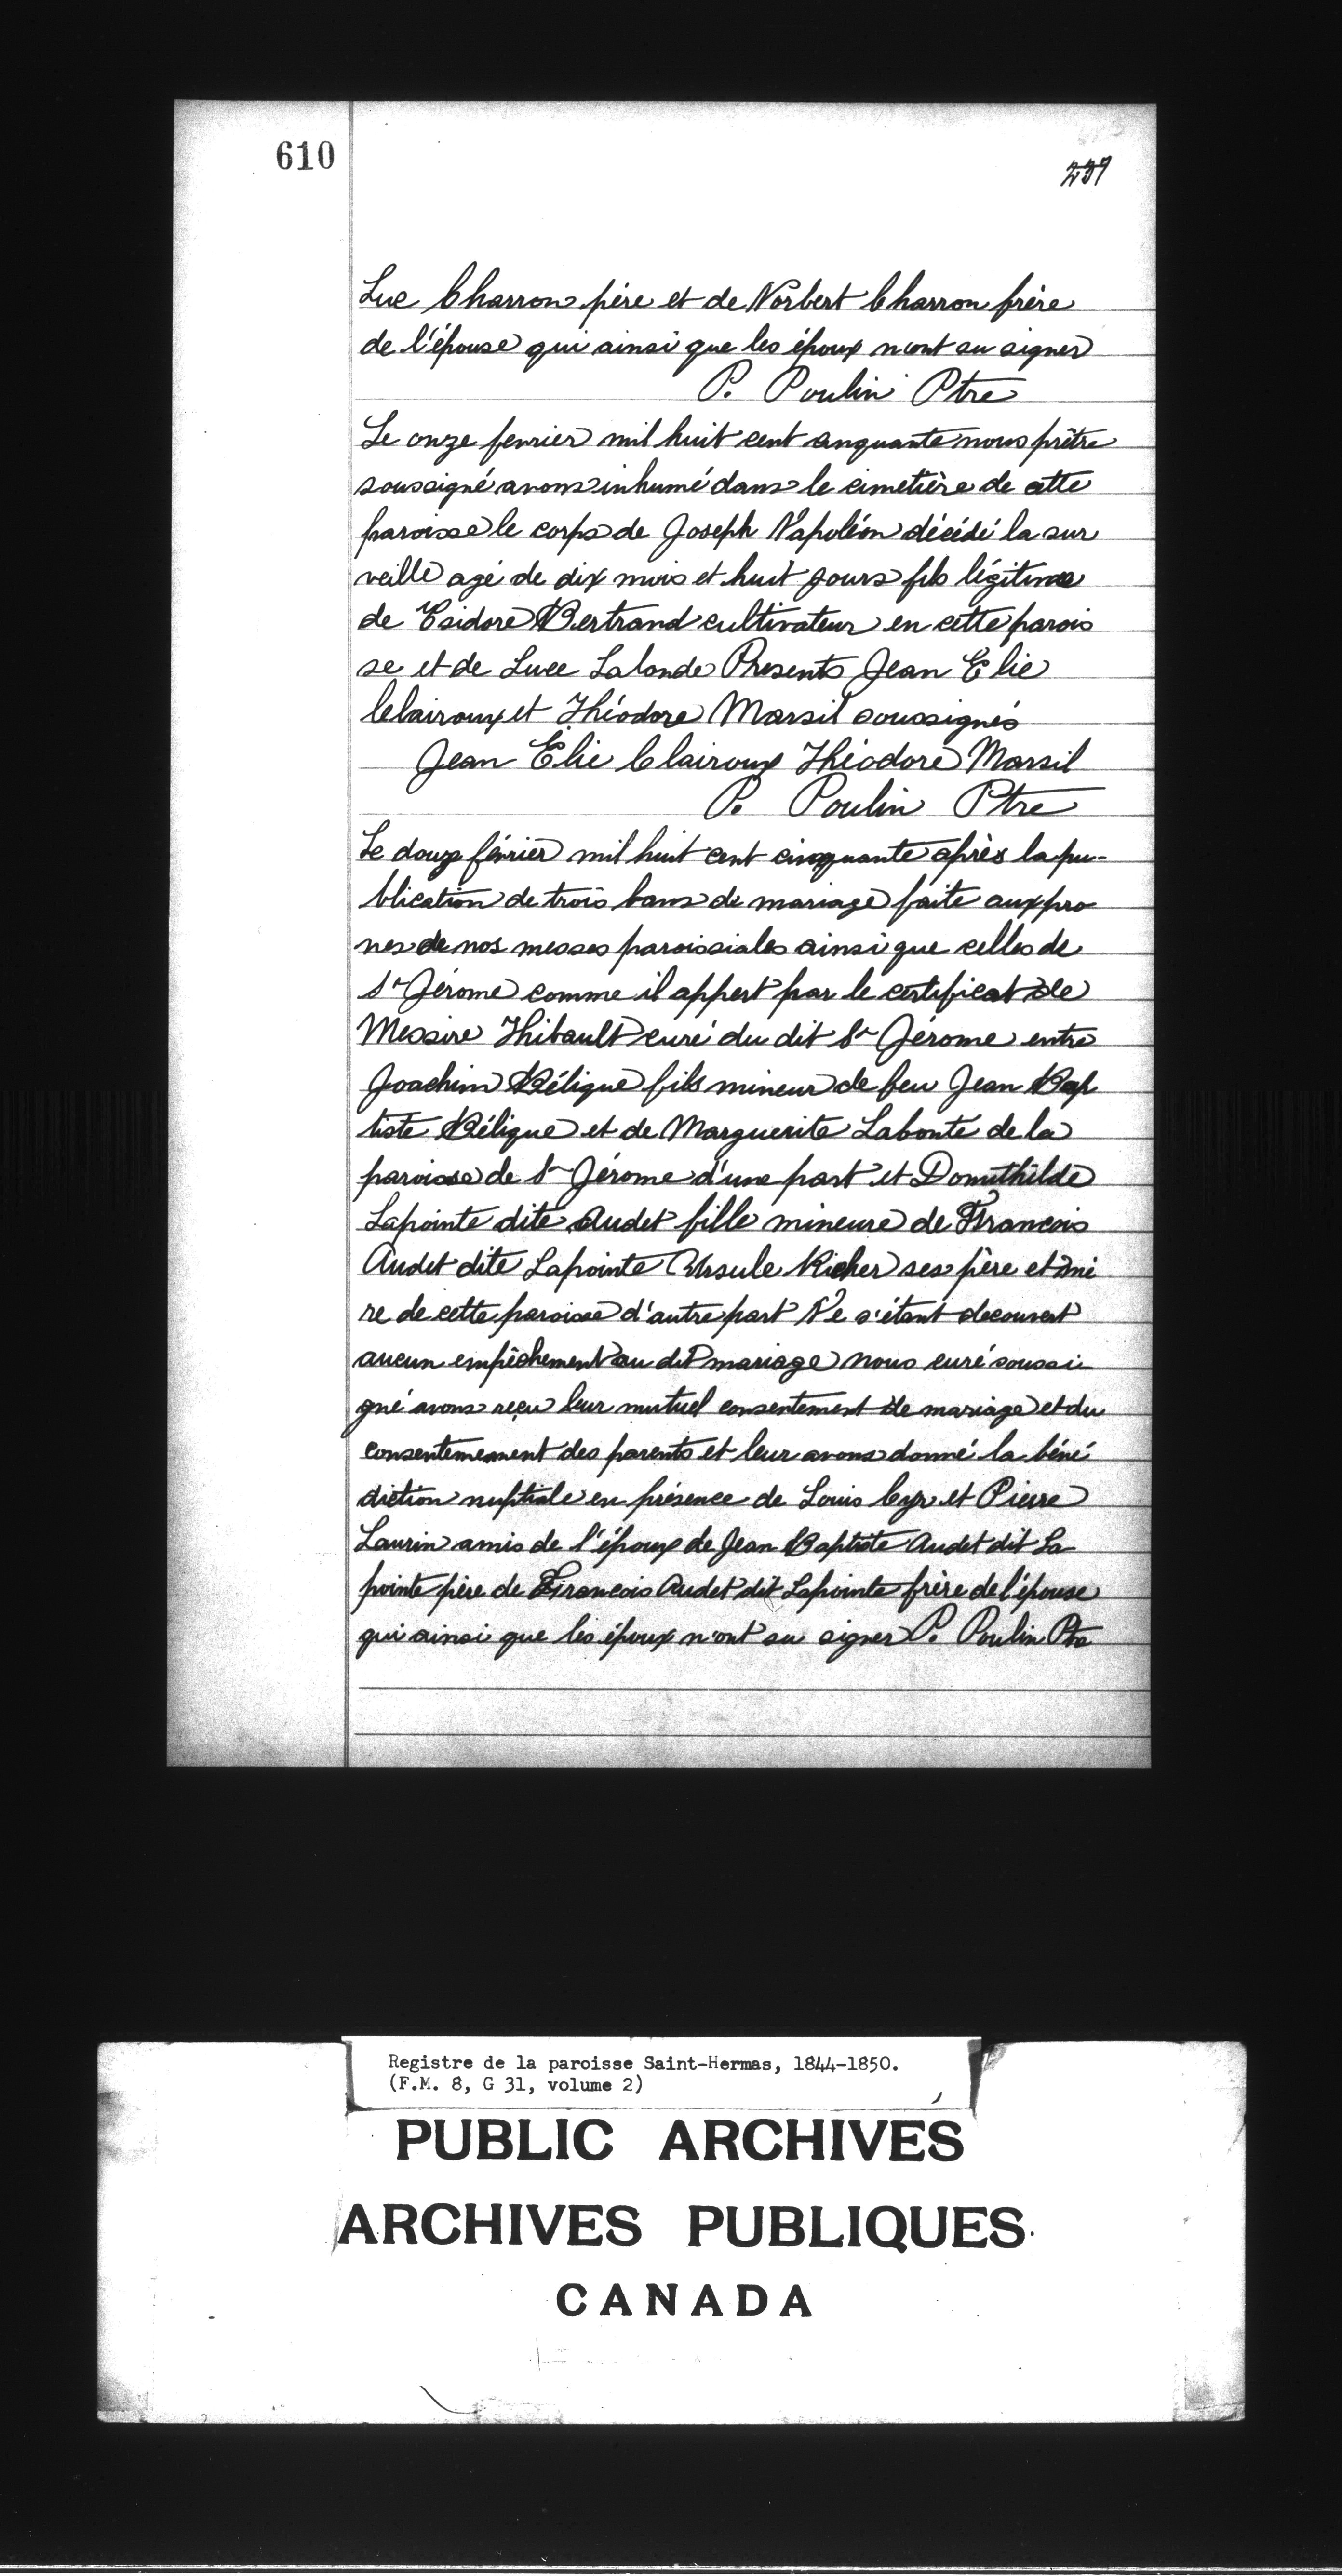 610
237
Luc Charron père et de Norbert Charron frère
de l'épouse qui ainsi que les époux n'ont su signer
P. Poulin Ptre
Le onze fevrier mil huit cent cinquante nous prêtre
soussigné avons inhumé dans le cimetière de cette
paroisse le corps de Joseph Napoléon décédé la sur
veille agé de dix mois et huit jours fils légitime
de Esidore Bertrand cultivateur en cette parois
se et de Luce Lalonde Presents Jean Elie
Clairoux et Théodore Marsil soussignés
Jean Elie Clairoux Théodore Marsil
P. Poulin Ptre
Le douze février mil huit cent cinquante après la pu-
blication de trois bans de mariage faite aux pro
nes de nos messes paroissiales ainsi que celles de
St Jérome comme il appert par le certificat de
Messire Thibault curé du dit St Jérome entre
Joachim Bélique fils mineur de feu Jean Bap
tiste Bélique et de Marguerite Labonté de la
paroisse de St Jérome d'une part et Domithilde
Lapointe dite Audet fille mineure de Francois
Audet dite Lapointe Ursule Richer ses père et mè
re de cette paroisse d'autre part Ne s'étant decouvert
aucun empêchement au dit mariage nous curé soussi
gné avons reçu leur mutuel consentement de mariage et du
consentemement des parents et leur avons donné la béné
diction nuptiale en présence de Louis Cyr et Pierre
Laurin amis de l'époux de Jean Baptiste Audet dit La
pointe père de Francois Audet dit Lapointe frère de l'épouse
qui ainsi que les époux n'ont su signer P. Poulin Ptre
Registre de la paroisse Saint-Hermas, 1844-1850.
(F.M. 8, G 31, volume 2)
PUBLIC ARCHIVES
ARCHIVES PUBLIQUES
CANADA